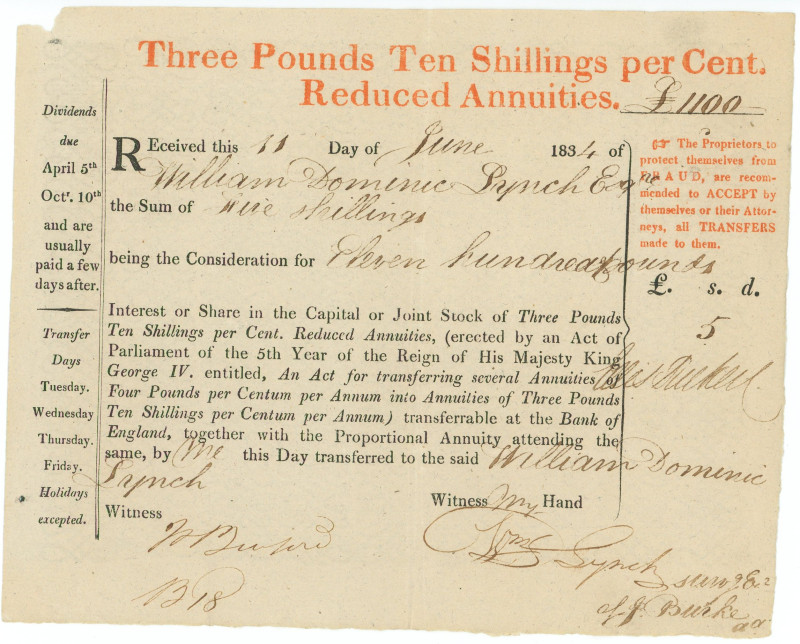 Three Pounds Ten Shillings per Cent.
Reduced Annuities. £1100
Dividends
due
April 5th
Octr. 10th
and are
usually
paid a few
days after.
Transfer
Days
Tuesday.
Wednesday
Thursday.
Friday.
Holidays
excepted.
REceived this 11 Day of June 1834 of
William Dominic Lynch Esqre
the Sum of five shillings
being the Consideration for Eleven hundred pounds
Interest or Share in the Capital or Joint Stock of Three Pounds
Ten Shillings per Cent. Reduced Annuities, (erected by an Act of
Parliament of the 5th Year of the Reign of His Majesty King
George IV. entitled, An Act for transferring several Annuities of
Four Pounds per Centum per Annum into Annuities of Three Pounds
Ten Shillings per Centum per Annum) transferrable at the Bank of
England, together with the Proportional Annuity attending the
same, by Me this Day transferred to the said William Dominic
Lynch
Witness Witness My Hand
Wm Lynch
surv of Ex
of J. Burke
B 18
☞ The Proprietors to
protect themselves from
FRAUD, are recom-
mended to ACCEPT by
themselves or their Attor-
neys, all TRANSFERS
made to them.
£. s. d.
5